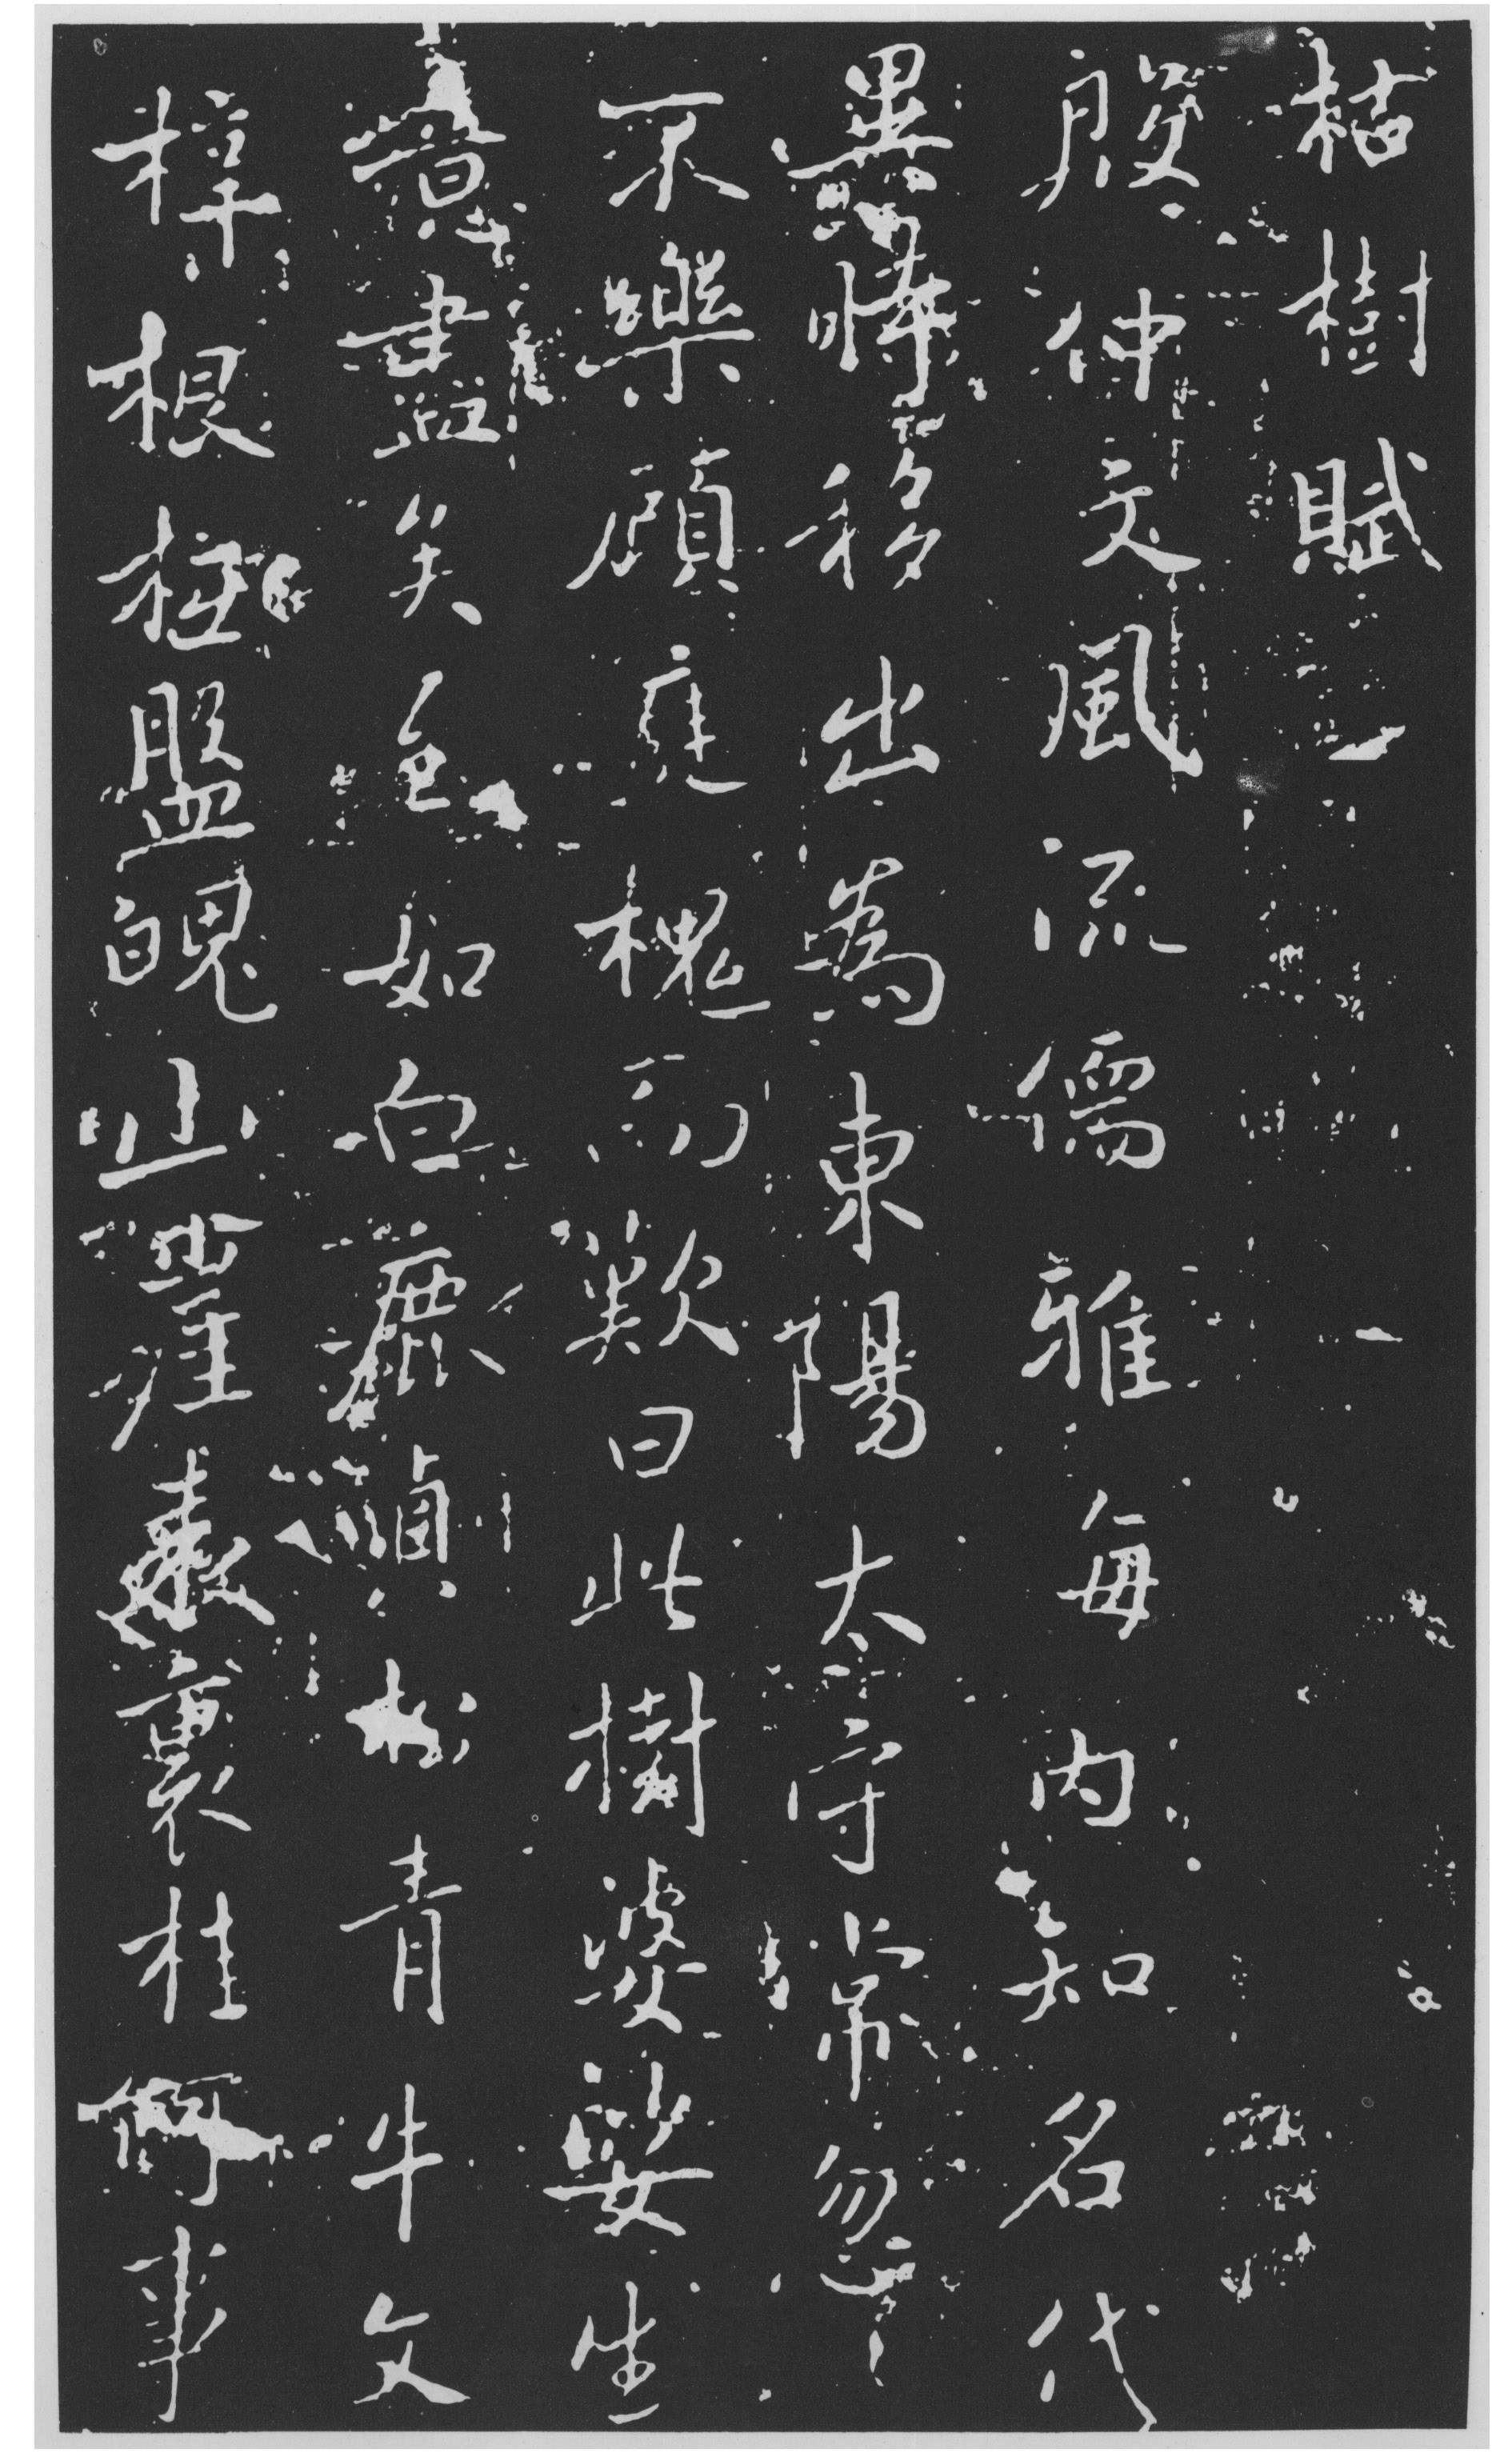 枯樹賦
殷仲文風流儒雅每內知名代
異時移出為東陽太守常忽〻
不樂顧庭槐而歎曰此樹婆娑生
意盡矣至如白鹿貞松青牛文
梓根柢盤魄山崖表裏桂何事